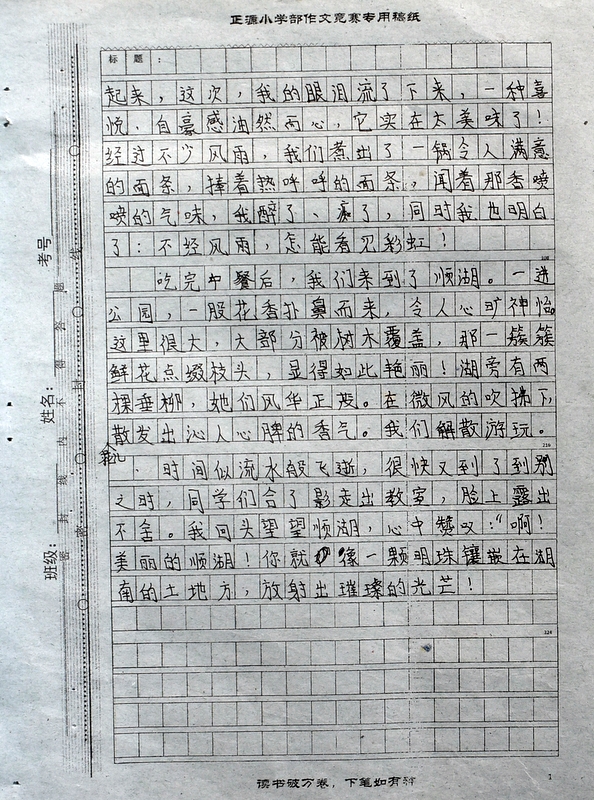 正源小学部作文竞赛专用稿纸
标题：
起来，这次，我的眼泪流了下来，一种喜
悦，自豪感油然而心，它实在太美味了！
经过不少风雨，我们煮出了一锅令人满意
的面条，捧着热呼呼的面条，闻着那香喷
喷的气味，我醉了、痴了，同时我也明白
了：不经风雨，怎能看见彩虹！
100
吃完中餐后，我们来到了顺湖。一进
公园，一股花香扑鼻而来，令人心旷神怡。
这里很大，大部分被树木覆盖，那一簇簇
鲜花点缀枝头，显得如此艳丽！湖旁有两
棵垂柳，她们风华正茂。在微风的吹拂下，
散发出沁人心脾的香气。我们解散游玩。
220
时间似流水般飞逝，很快又到了到别
之时，同学们合了影走出教室，脸上露出
不舍。我回头望望顺湖，心中赞叹：“啊！
美丽的顺湖！你就像一颗明珠镶嵌在湖
南的土地方，放射出璀璨的光芒！
324
读书破万卷，下笔如有神
1
考号
姓名：
班级：
密封线内不得答题